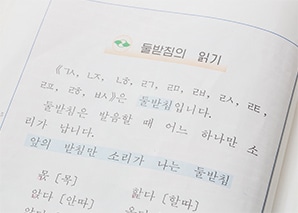 둘받침의 읽기
《ㄳ, ㄵ, ㄶ, ㄺ, ㄻ, ㄼ, ㄽ, ㄾ,
ㄿ, ㅀ, ㅄ》은 둘받침입니다.
둘받침은 발음할 때 어느 하나만 소
리가 납니다.
앞의 받침만 소리가 나는 둘받침
몫 [목] 핥다 [할따]
앉다 [안따]